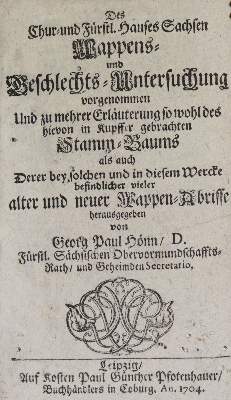 Des
Chur-und Fürstl. Hauses Sachsen
Wappens-
und
Geschlechts-Untersuchung
vorgenommen
Und zu mehrer Erläuterung so wohl des
hievon in Kupffer gebrachten
Stamm-Baums
als auch
Derer bey solchen und in diesem Wercke
befindlicher vieler
alter und neuer Wappen-Abrisse
herausgegeben
von
Georg Paul Hönn / D.
Fürstl. Sächsischen Obervormundschaffts-
Rath / und Geheimden Secretario.
Leipzig /
Auf Kosten Paul Günther Pfotenhauer /
Buchhändlers in Coburg, An. 1704.